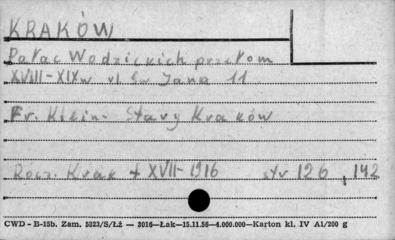 KRAKÓW
Pałac Wodzickich przełom
XVIII-XIXw ul. Św Jana 11
Fr. Klein- Stary Kraków
Rocz. Krak t XVII-1916 str 126, 142
CWD - B-15b. Zam. 5823/S/Łż — 3016—Łak—15.11.56—4.000.000—Karton kl. IV A1/200 g